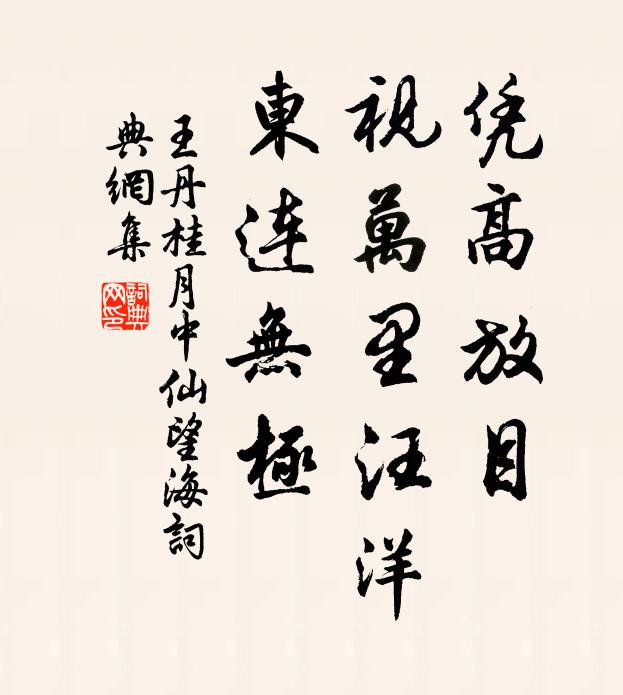 凭高放目
視萬里汪洋
東連無極
王丹桂月中仙望海詞
典網集
詞典
网印